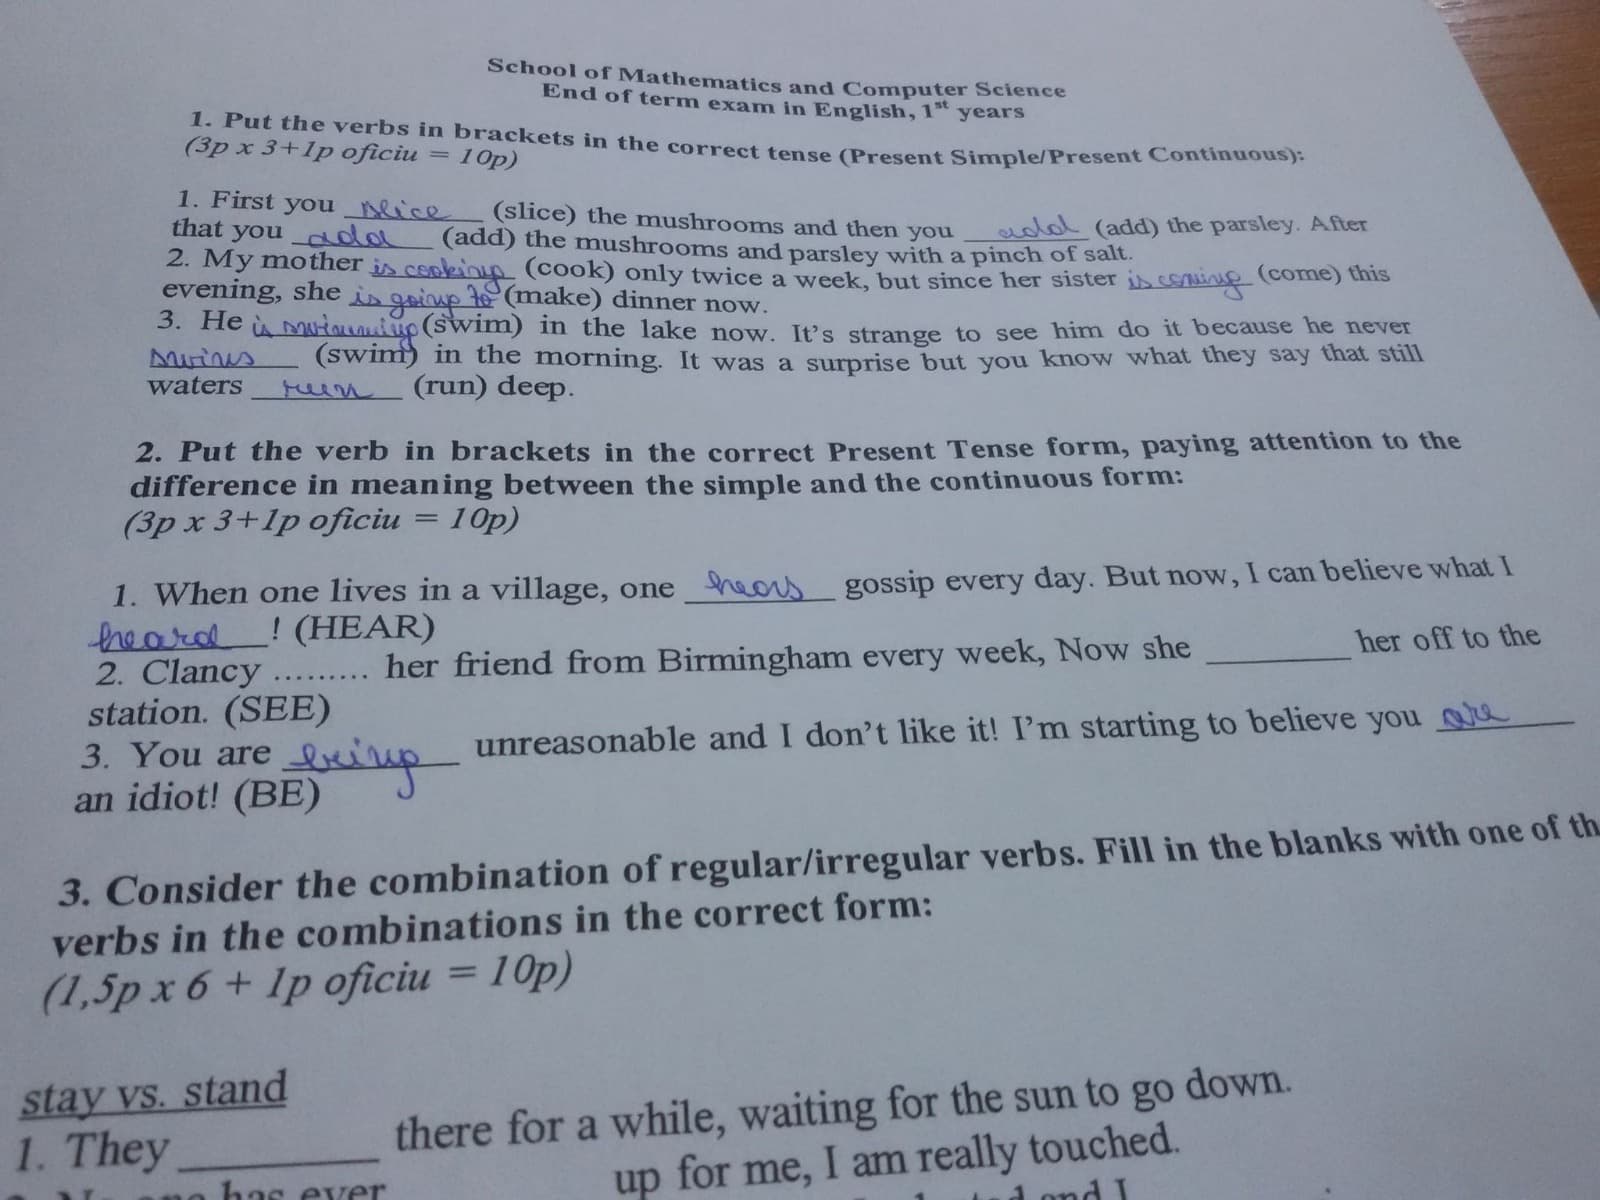 School of Mathematics and Computer Science
End of term exam in English, 1st years
1. Put the verbs in brackets in the correct tense (Present Simple/Present Continuous):
(3p x 3+1p oficiu = 10p)
1. First you slice (slice) the mushrooms and then you add (add) the parsley. After
that you add (add) the mushrooms and parsley with a pinch of salt.
2. My mother is cooking (cook) only twice a week, but since her sister is coming (come) this
evening, she is going to (make) dinner now.
3. He is swimming (swim) in the lake now. It's strange to see him do it because he never
swims (swim) in the morning. It was a surprise but you know what they say that still
waters run (run) deep.
2. Put the verb in brackets in the correct Present Tense form, paying attention to the
difference in meaning between the simple and the continuous form:
(3p x 3+1p oficiu = 10p)
1. When one lives in a village, one hears gossip every day. But now, I can believe what I
heard ! (HEAR)
2. Clancy ......... her friend from Birmingham every week, Now she ________ her off to the
station. (SEE)
3. You are being unreasonable and I don't like it! I'm starting to believe you are
an idiot! (BE)
3. Consider the combination of regular/irregular verbs. Fill in the blanks with one of th
verbs in the combinations in the correct form:
(1,5p x 6 + 1p oficiu = 10p)
stay vs. stand
1. They ________ there for a while, waiting for the sun to go down.
has ever up for me, I am really touched.
and I